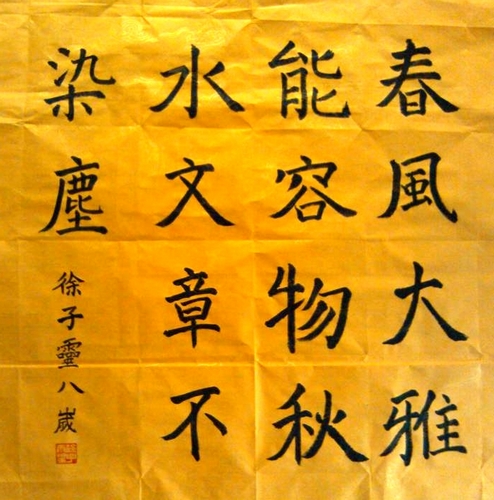 春風大雅
能容物秋
水文章不
染塵
徐子靈八歲